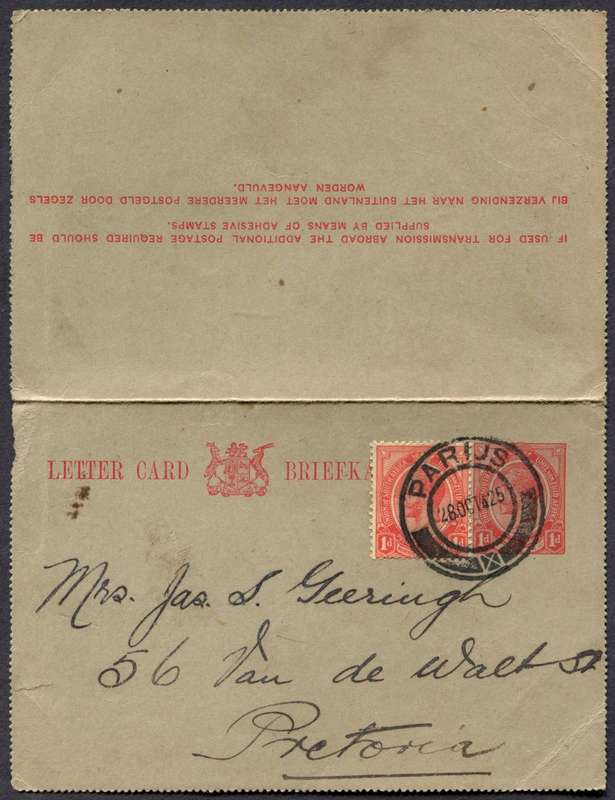 BIJ VERZENDING NAAR HET BUITENLAND MOET HET MEERDERE POSTGELD DOOR ZEGELS
WORDEN AANGEVULD.
IF USED FOR TRANSMISSION ABROAD THE ADDITIONAL POSTAGE REQUIRED SHOULD BE
SUPPLIED BY MEANS OF ADHESIVE STAMPS.
LETTER CARD BRIEFKA
PARIJS
28 OCT 25
1d 1d 1d
Mrs. Jas. S. Geeringh
56 Van de Walt St
Pretoria